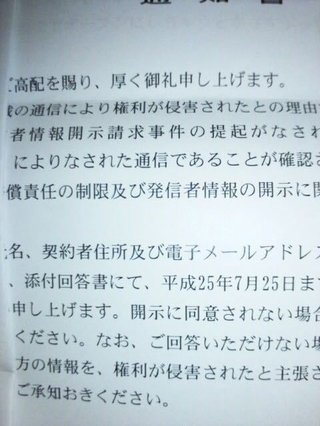 通知書
ご高配を賜り、厚く御礼申し上げます。
の通信により権利が侵害されたとの理由
者情報開示請求事件の提起がなされ
によりなされた通信であることが確認さ
償責任の制限及び発信者情報の開示に関
名、契約者住所及び電子メールアドレス
、添付回答書にて、平成25年7月25日ま
申し上げます。開示に同意されない場合
ください。なお、ご回答いただけない場
方の情報を、権利が侵害されたと主張さ
ご承知おきください。